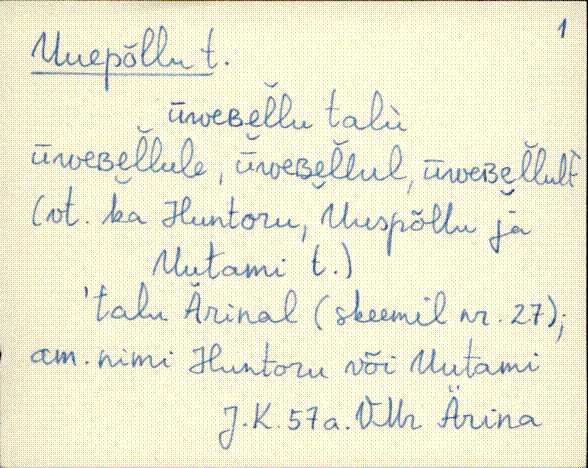 1
Uuepõllu t.
ūweʙel̆lu talù
ūweʙel̆lule, ūweʙel̆lul, ūweʙel̆lult
(vt. ka Huntoru, Uuspõllu ja
Uutami t.)
'talu Ärinal (skeemil nr. 27);
am. nimi Huntoru või Uutami
J.K. 57a. VMr Ärina